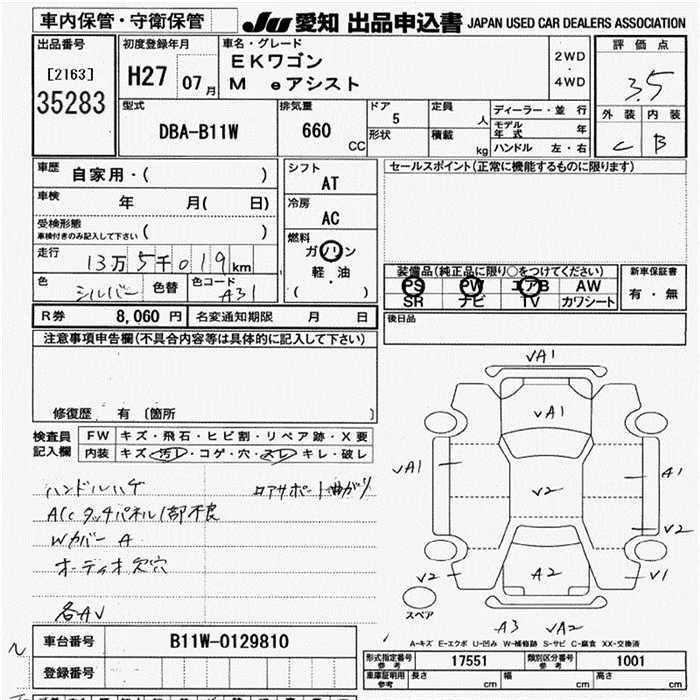 車内保管・守衛保管 JU 愛知 出品申込書 JAPAN USED CAR DEALERS ASSOCIATION
出品番号 初度登録年月 車名・グレード 評価点
[2163] H27 07月 EKワゴン 2WD
35283 M eアシスト 4WD 3.5
型式 排気量 ドア 定員 ディーラー・並 行 外装 内装
DBA-B11W 660 CC 5 人 モデル年式 年 C B
形状 積載 kg ハンドル 左・右
車歴 自家用・( ) シフト AT セールスポイント(正常に機能するものに限ります)
車検 年 月( 日) 冷房 AC
受検形態 ( )
車検付きのみ記入して下さい
燃料 ガソリン
走行 13万5千019km 軽・油
装備品(純正品に限り○をつけてください) 新車保証書
色 シルバー 色替 色コード A31 ( ) PS PW エアB AW 有・無
SR ナビ TV カワシート
R券 8,060 円 名変通知期限 月 日 後日品
注意事項申告欄(不具合内容等は具体的に記入して下さい)
修復歴 有 〔箇所
検査員 FW キズ・飛石・ヒビ割・リペア跡・X要
記入欄 内装 キズ・汚レ・コゲ・穴・スレ・キレ・破レ
ハンドルハゲ ロアサポート曲がり
A/Cタッチパネル1部不良
Wカバー A
オーディオ欠穴
各AV
√A1
√A1
√A1 A1
√2
√2
√2 A2 √1
スペア
A3 √A2
A-キズ E-エクボ U-凹み W-補修跡 S-サビ C-腐食 XX-交換済
車台番号 B11W-0129810
形式指定番号 参考 17551 類別区分番号 参考 1001
登録番号
車庫証明用 参考 長さ cm 幅 cm 高さ cm